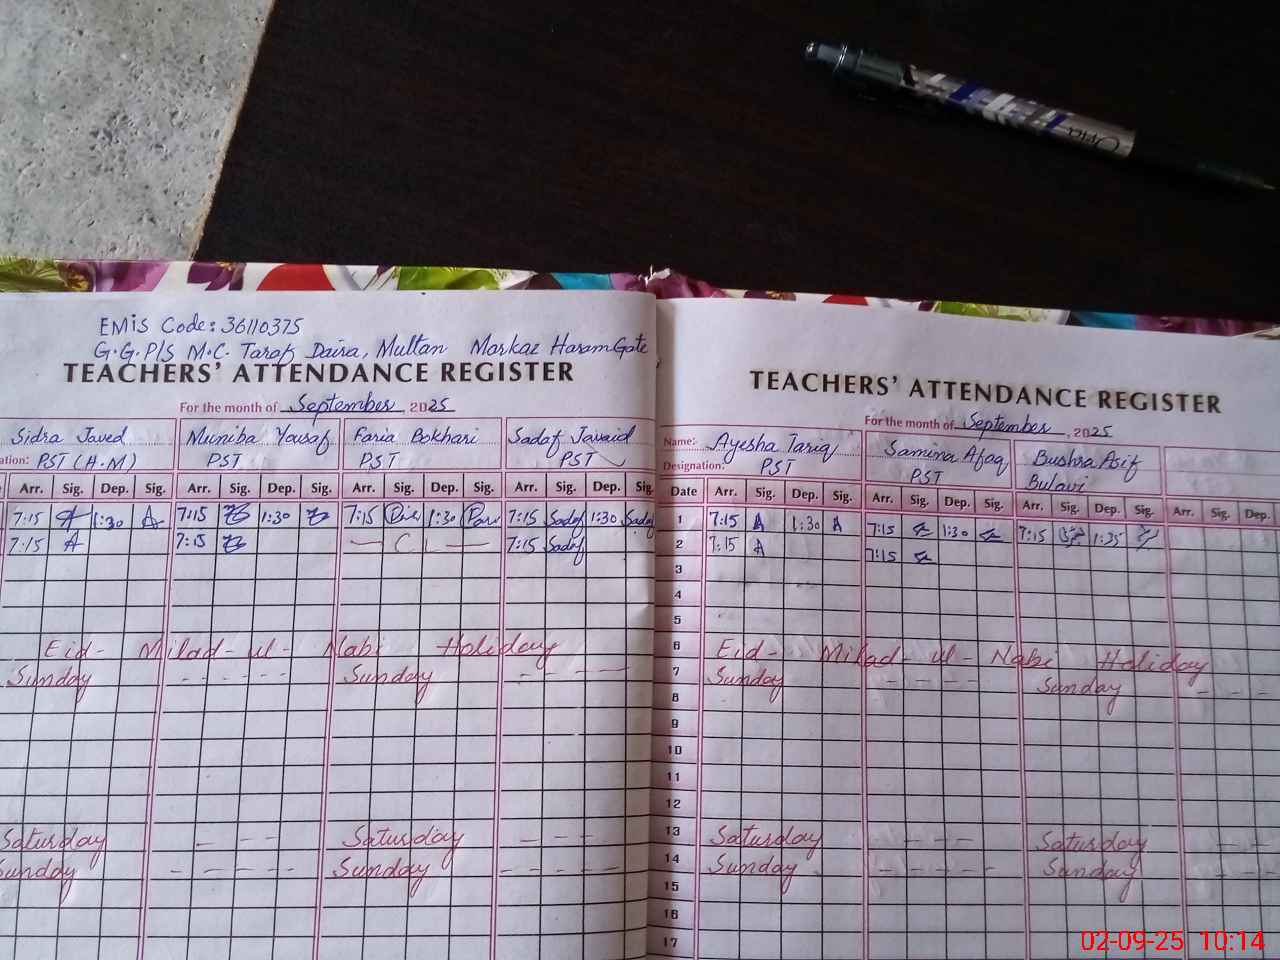 Orta
EMiS Code: 36110375
G.G.P/S M.C. Taraf Daira, Multan Markaz Haram Gate
TEACHERS' ATTENDANCE REGISTER
For the month of September 2025
Sidra Javed Muniba Yousaf Faria Bokhari Sadaf Javaid
ation: PST (H.M) PST PST PST
Arr. Sig. Dep. Sig. Arr. Sig. Dep. Sig. Arr. Sig. Dep. Sig. Arr. Sig. Dep. Sig.
7:15 1:30 7:15 1:30 7:15 1:30 7:15 Sadaf 1:30 Sadaf
7:15 7:15 — C L — 7:15 Sadaf
Eid- Milad- ul- Nabi Holiday
Sunday - - - - - - Sunday - - - -
Saturday - - - - Saturday - - - -
Sunday - - - - - Sunday - - - - -
TEACHERS' ATTENDANCE REGISTER
For the month of September, 2025
Name: Ayesha Tariq Samina Afaq Bushra Asif
Designation: PST PST Bulavi
Date Arr. Sig. Dep. Sig. Arr. Sig. Dep. Sig. Arr. Sig. Dep. Sig. Arr. Sig. Dep.
1 7:15 1:30 7:15 1:30 7:15 1:35
2 7:15 7:15
3
4
5
6 Eid- Milad- ul- Nabi Holiday
7 Sunday - - - - - Sunday - - -
8
9
10
11
12
13 Saturday - - - - Saturday - -
14 Sunday - - - - - Sunday - - -
15
16
17
02-09-25 10:14